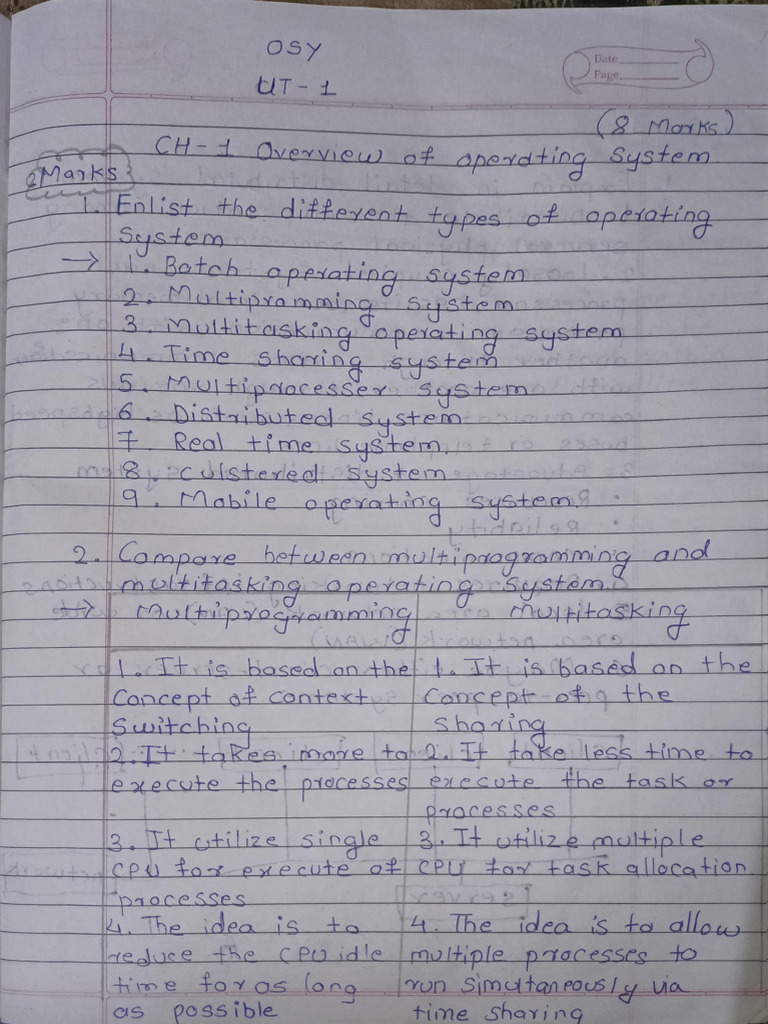 OSY
UT-1
Date
Page
(8 Marks)
CH-1 Overview of operating System
2 Marks
1. Enlist the different types of operating
System
→ 1. Batch operating system
2. Multipramming system
3. Multitasking operating system
4. Time sharing system
5. Multiprocesser system
6. Distributed system
7. Real time system.
8. Culstered system
9. Mobile operating system.
2. Compare between multiprogramming and
multitasking operating system.
→ Multiprogramming
1. It is based on the
Concept of context
Switching
2. It takes more to
execute the processes
3. It utilize single
CPU for execute of
processes
4. The idea is to
reduce the CPU idle
time for as long
as possible
Multitasking
1. It is based on the
Concept of the
sharing
2. It take less time to
execute the task or
processes
3. It utilize multiple
CPU for task allocation
4. The idea is to allow
multiple processes to
run simultaneously via
time sharing